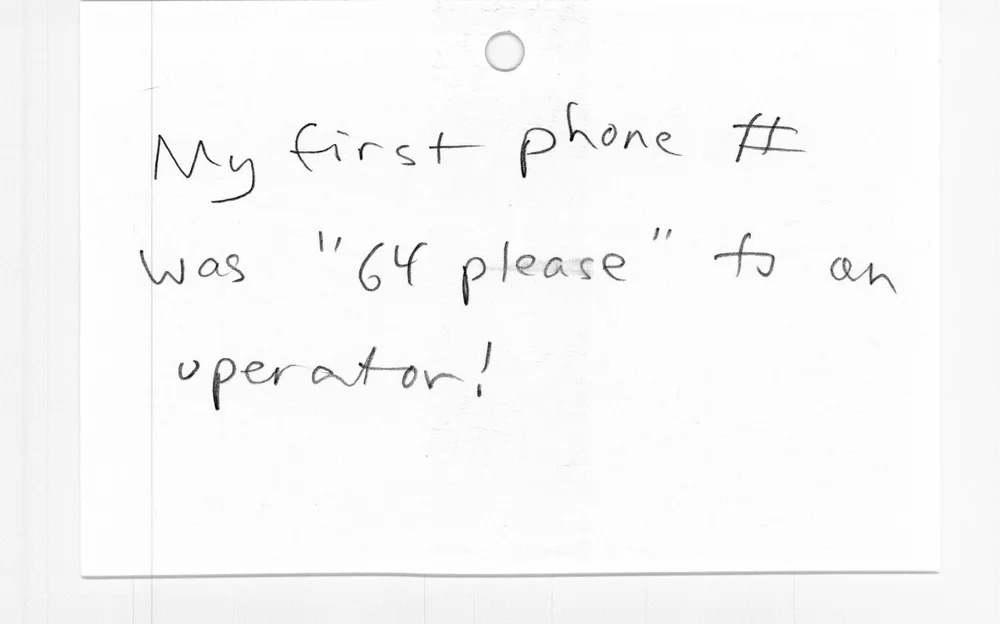 My first phone #
was "64 please" to an
operator!